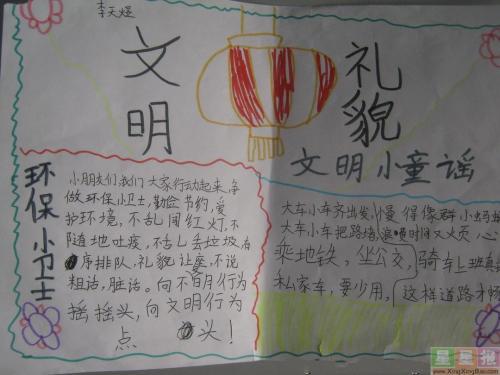 李天煜
文明
礼貌
文明小童谣
环保小卫士
小朋友们,我们大家行动起来,争
做环保小卫士,勤俭节约,爱
护环境,不乱闯红灯,不
随地吐痰,不乱丢垃圾,有
序排队,礼貌让座,不说
粗话,脏话。向不文明行为
摇摇头,向文明行为
点头!
大车小车齐出发,慢慢得像群小蚂蚁
大车小车把路堵,浪费时间又烦心
乘地铁,坐公交,骑车上班真
私家车,要少用,这样道路才畅
星星报
www.XingXingBao.com